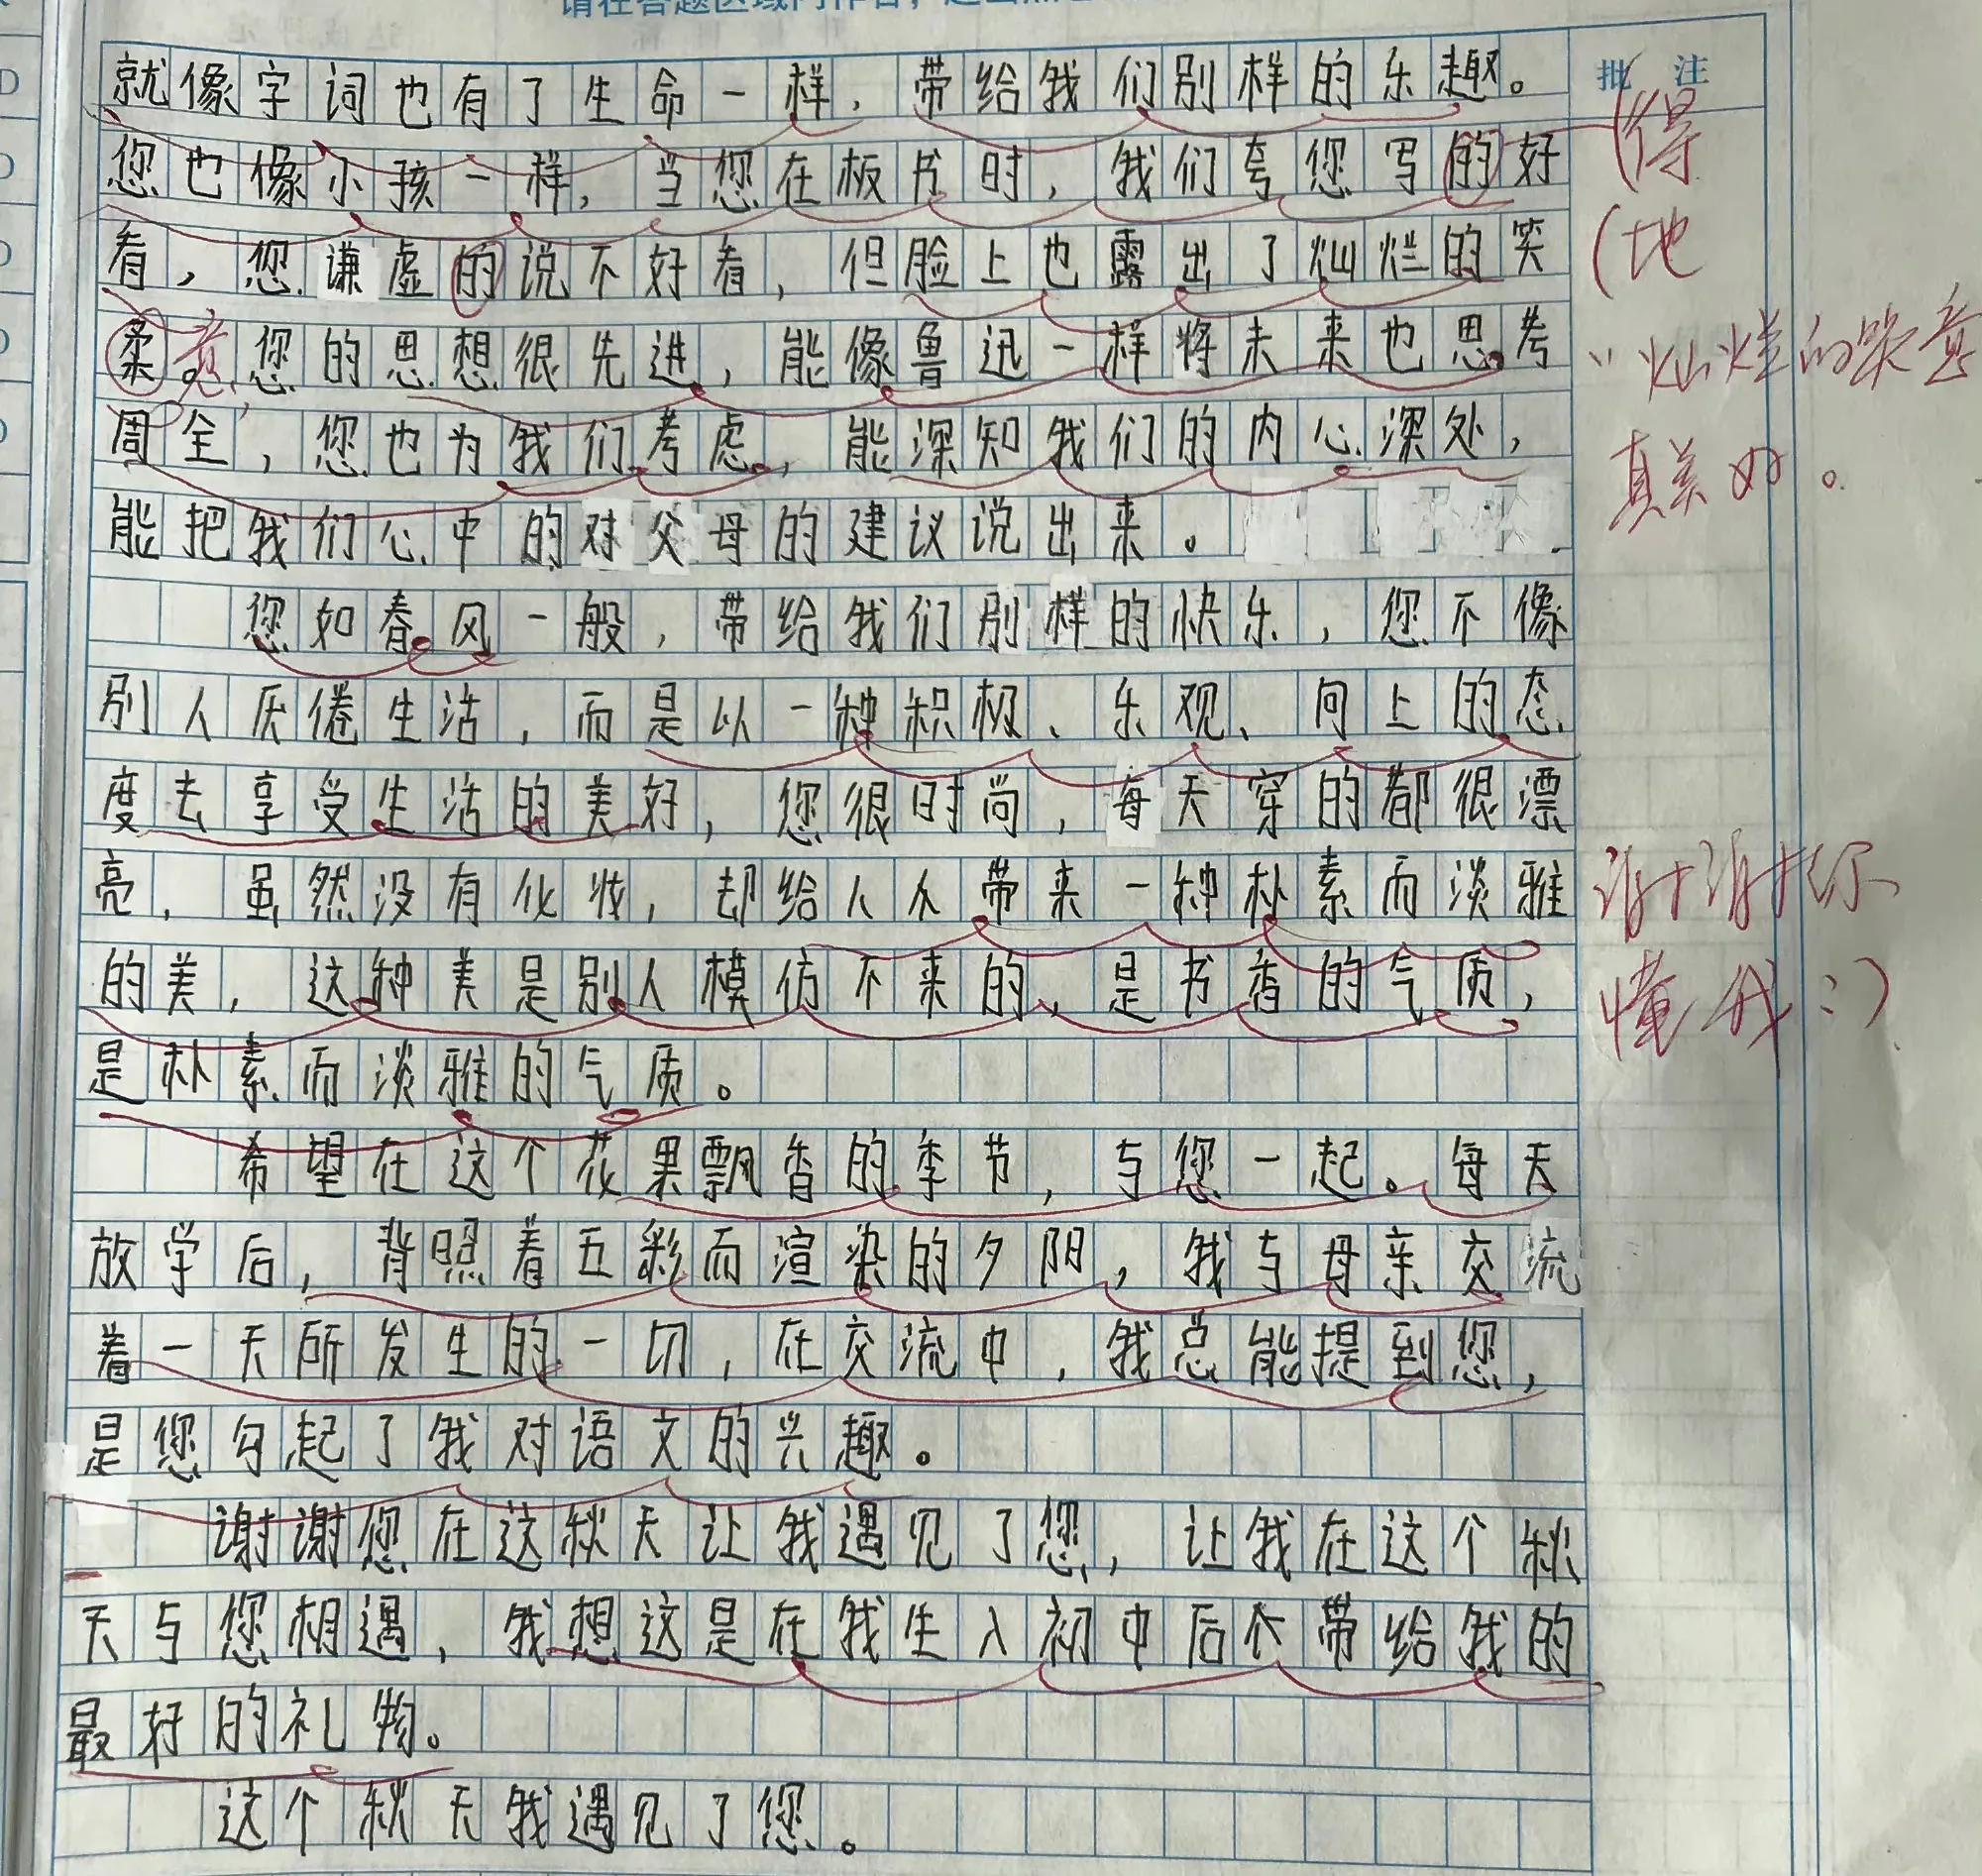 就像字词也有了生命一样，带给我们别样的乐趣。
批 注
得
您也像小孩一样，当您在板书时，我们夸您写的好
地
看，您谦虚的说不好看，但脸上也露出了灿烂的笑
柔意，您的思想很先进，能像鲁迅一样将未来也思考
"灿烂的笑意
周全，您也为我们考虑，能深知我们的内心深处，
真美好。
能把我们心中的对父母的建议说出来。
您如春风一般，带给我们别样的快乐，您不像
别人厌倦生活，而是以一种积极、乐观、向上的态
度去享受生活的美好，您很时尚，每天穿的都很漂
亮，虽然没有化妆，却给人们带来一种朴素而淡雅
谢谢你
的美，这种美是别人模仿不来的，是书香的气质，
懂我:)
是朴素而淡雅的气质。
希望在这个花果飘香的季节，与您一起。每天
放学后，背照着五彩而渲染的夕阳，我与母亲交流
着一天所发生的一切，在交流中，我总能提到您，
是您勾起了我对语文的兴趣。
谢谢您在这秋天让我遇见了您，让我在这个秋
天与您相遇，我想这是在我生入初中后个带给我的
最好的礼物。
这个秋天我遇见了您。